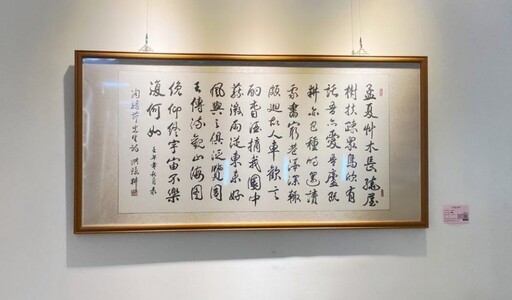 孟夏艸木長繞屋
樹扶疏眾鳥欣有
託吾亦愛吾廬既
耕亦已種時還讀
我書窮巷隔深轍
頗迴故人車歡言
酌春酒摘我園中
蔬微雨從東來好
風與之俱泛覽周
王傳流觀山海圖
俛仰終宇宙不樂
復何如
陶靖節先生詩